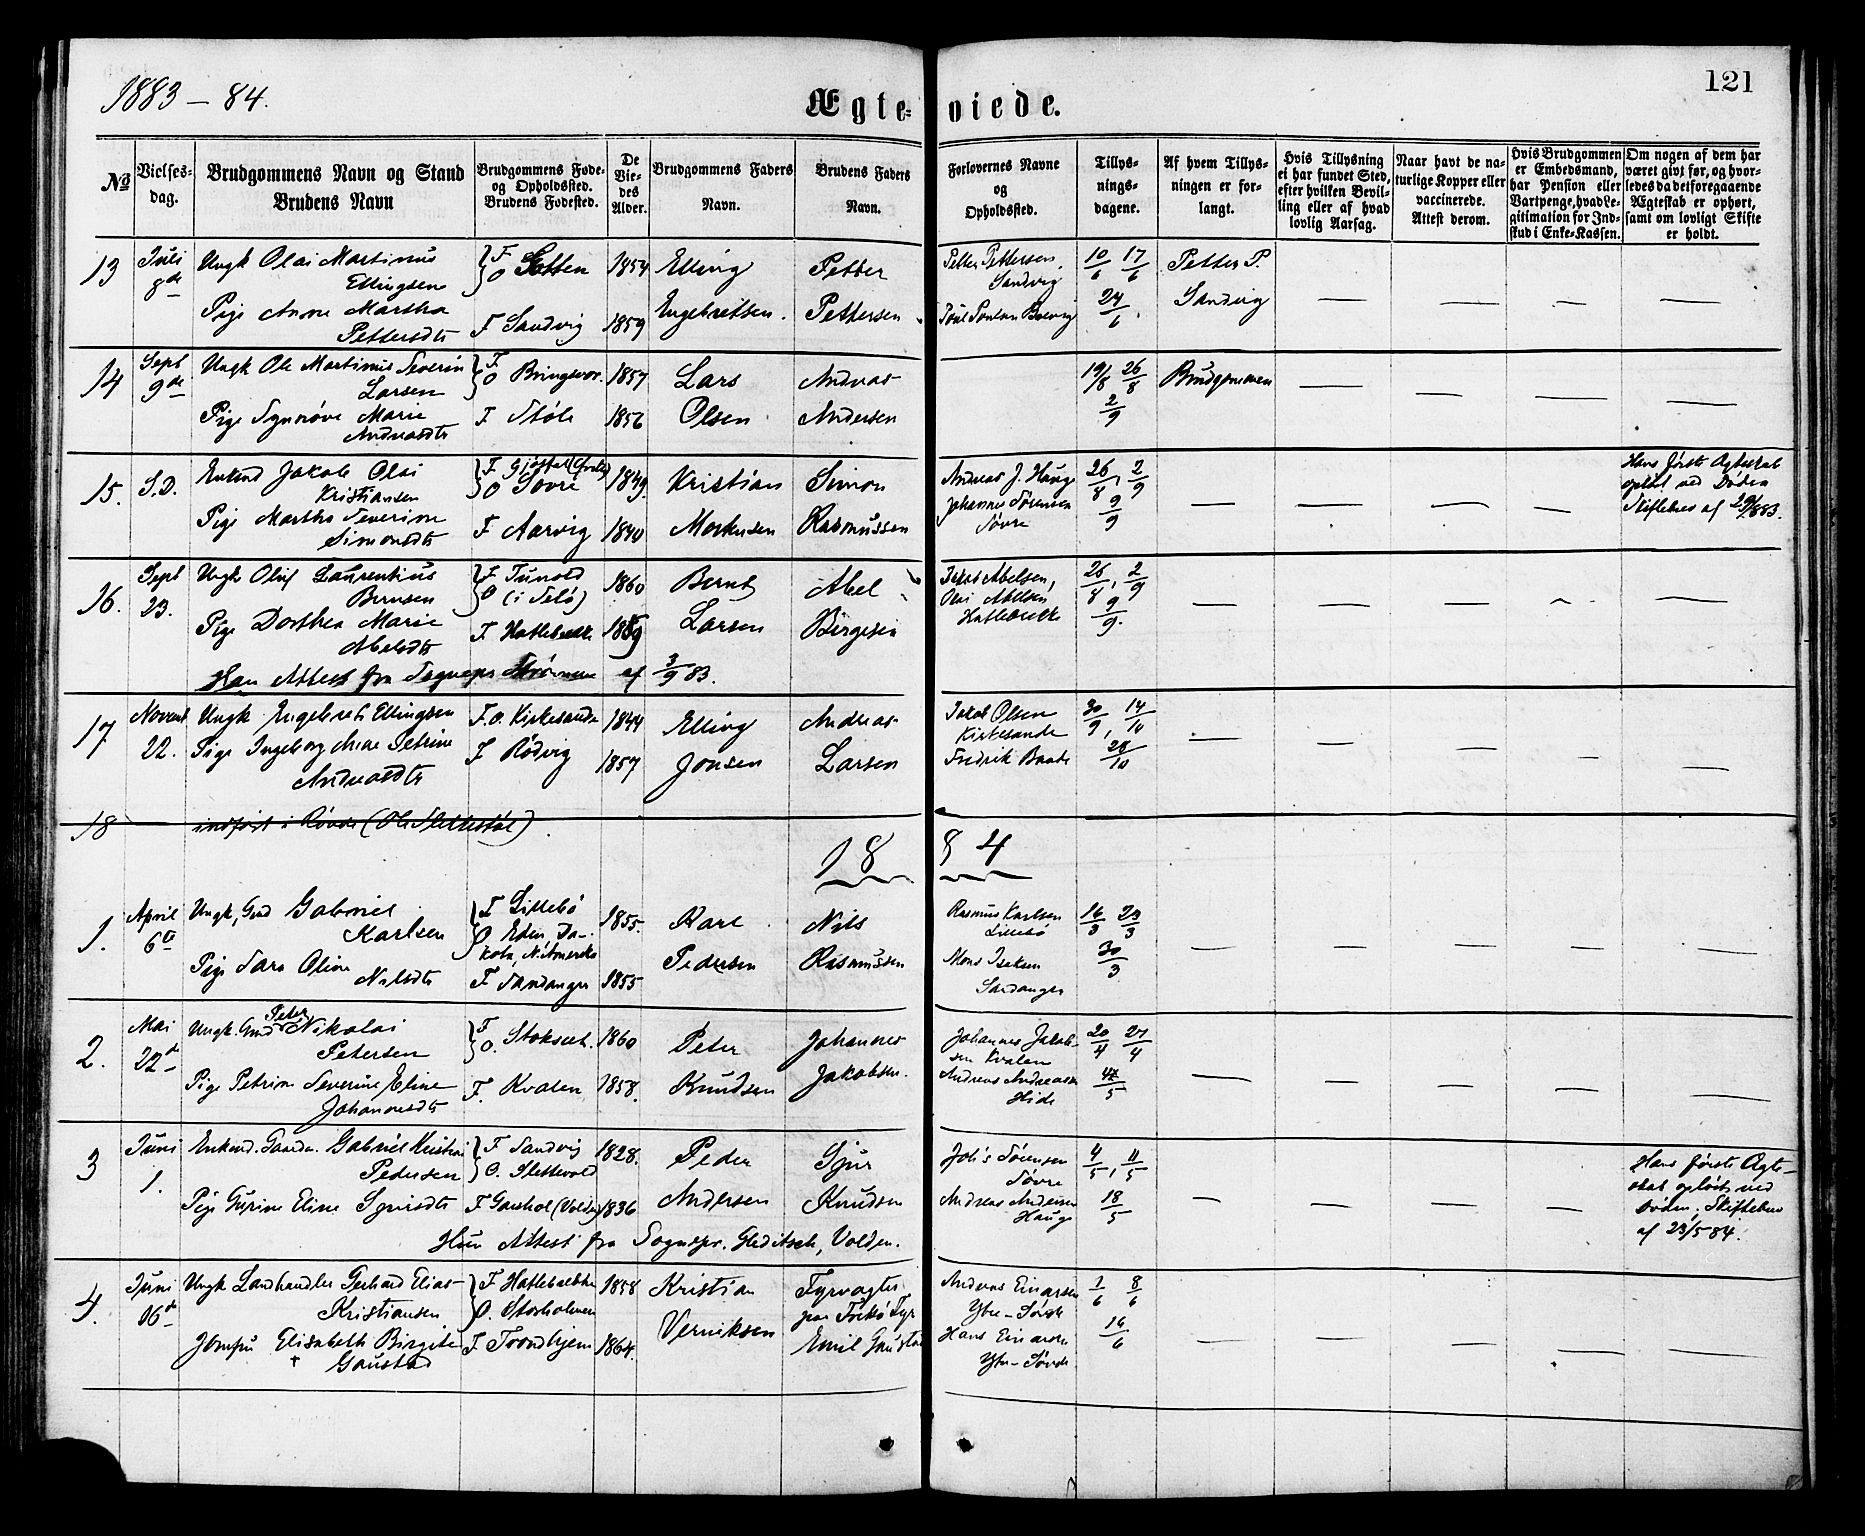 1883 – 84.
Ægte-
viede.
121
No
Vielses-
dag.
Brudgommens Navn og Stand
Brudens Navn
Brudgommens Føde-
og Opholdssted.
Brudens Fødested.
De
Vie-
des
Alder.
Brudgommens Faders
Navn.
Brudens Faders
Navn.
Forlovernes Navne
og
Opholdssted.
Tillys-
nings-
dagene.
Af hvem Tillys-
ningen er for-
langt.
Hvis Tillysning
ei har fundet Sted,
efter hvilken Bevil-
ling eller af hvad
lovlig Aarsag.
Naar havt de na-
turlige Kopper eller
vaccinerede.
Attest derom.
Hvis Brudgommen
er Embedsmand,
har Pension eller
Vartpenge, hvad Le-
gitimation for Ind-
skud i Enke-Kassen.
Om nogen af dem har
været givt før, og hvor-
ledes da det foregaaende
Ægteskab er ophørt,
samt om lovligt Skifte
er holdt.
13
Juli
8de
Ungk Olai Martinus
Ellingsen
Pige Anne Martha
Pettersdtr
F
O
F Sandvig
1854
1859
Elling
Engebretsen.
Petter
Pettersen
Petter Pettersen,
Sandvig
10/6 17/6
24/6.
Petter P.
Sandvig
14
Sept
9de
Ungk Ole Martinus Severin
Larsen
Pige Synnøve Marie
Andreasdtr
F
O Bringsvor.
F Støle
1857
1856
Lars
Olsen
Andreas
Andersen
19/8 26/8
2/9
Brudgommen
15.
S.D.
Enkmd Jakob Olai
Kristiansen
Pige Martha Severine
Simonsdtr
F
O Søvre
F Aarvig
1849.
1840
Kristian
Simon
Rasmussen
Andreas J. Hauge
Johannes Sørensen
Søvre
26/8, 2/9
9/9
Hans første Ægteskab
opløst ved Døden
16.
Sept
23.
Ungk Oluf Laurentius
Berntsen
Pige Dorthea Marie
Abelsdtr
F
O
F Hatlebrekke
1860
1859
Bernt
Larsen
Abel
Børgesen
Jakob Abelsen,
Olai Abelsen
Hatlebrekke
26/8, 2/9
9/9.
Hans Attest fra Sognepr af 3/9 83.
17
Novem
22.
Ungk Engebret Ellingsen
Pige Ingeborg Anne Petrine
Andreasdtr
F.O. Kirkesande
F Rødvig
1844
1857
Elling
Jonsen
Andreas
Larsen
Jakob Olsen
Kirkesande
Fredrik Baade
30/9, 14/10
28/10
18
indført i Røvde (Ole Slettestøl).
1884
1.
April
6te
Ungk, Gmd Gabriel
Karlsen
Pige Sara Oline
Nilsdtr
F Lillebø
O Eden Da-
kota, N. Amerika
F Sandanger
1855.
1855
Karl
Pedersen
Nils
Rasmussen
Rasmus Karlsen
Lillebø
Mons Iseksen
Sandanger
16/3 23/3
30/3
2.
Mai
22de
Ungk. Gmd Peter Nikolai
Petersen
Pige Petrine Severine Eline
Johannesdtr
F
O. Stokset.
F. Kvalen
1860
1858.
Peter
Knudsen
Johannes
Jakobsen.
Johannes Jakob-
sen Kvalen
Andreas Andreassen
Hide
20/4 27/4
3
Juni
1.
Enkmd. Gaardm. Gabriel Kristian
Pedersen
Pige Gurine Eline Sjursdtr
F Sandvig
O. Slettevold
F Gaushol (Volden)
1828.
1836
Peder
Andersen
Sjur
Knudsen
Joh's Sørensen
Søvre
Andreas Andersen
Hauge
4/5, 11/5
18/5
Hans første Ægte-
skab opløst ved
Døden. Skiftebrev
af 23/5 84.
Hun Attest fra Sognepr. Gleditsch, Volden.
4.
Juni
16de
Ungk Landhandler Gerhard Elias
Kristiansen
Jomfru Elisabeth Birgite
Gaustad
F Hatlebrekke
O. Storholmen
F Trondhjem
1858
1864.
Kristian
Verniksen
Fyrvogter
Emil Gaustad
Andreas Einarsen
Ytre-Søvde
Hans Einarsen
Ytre-Søvde
1/6 8/6